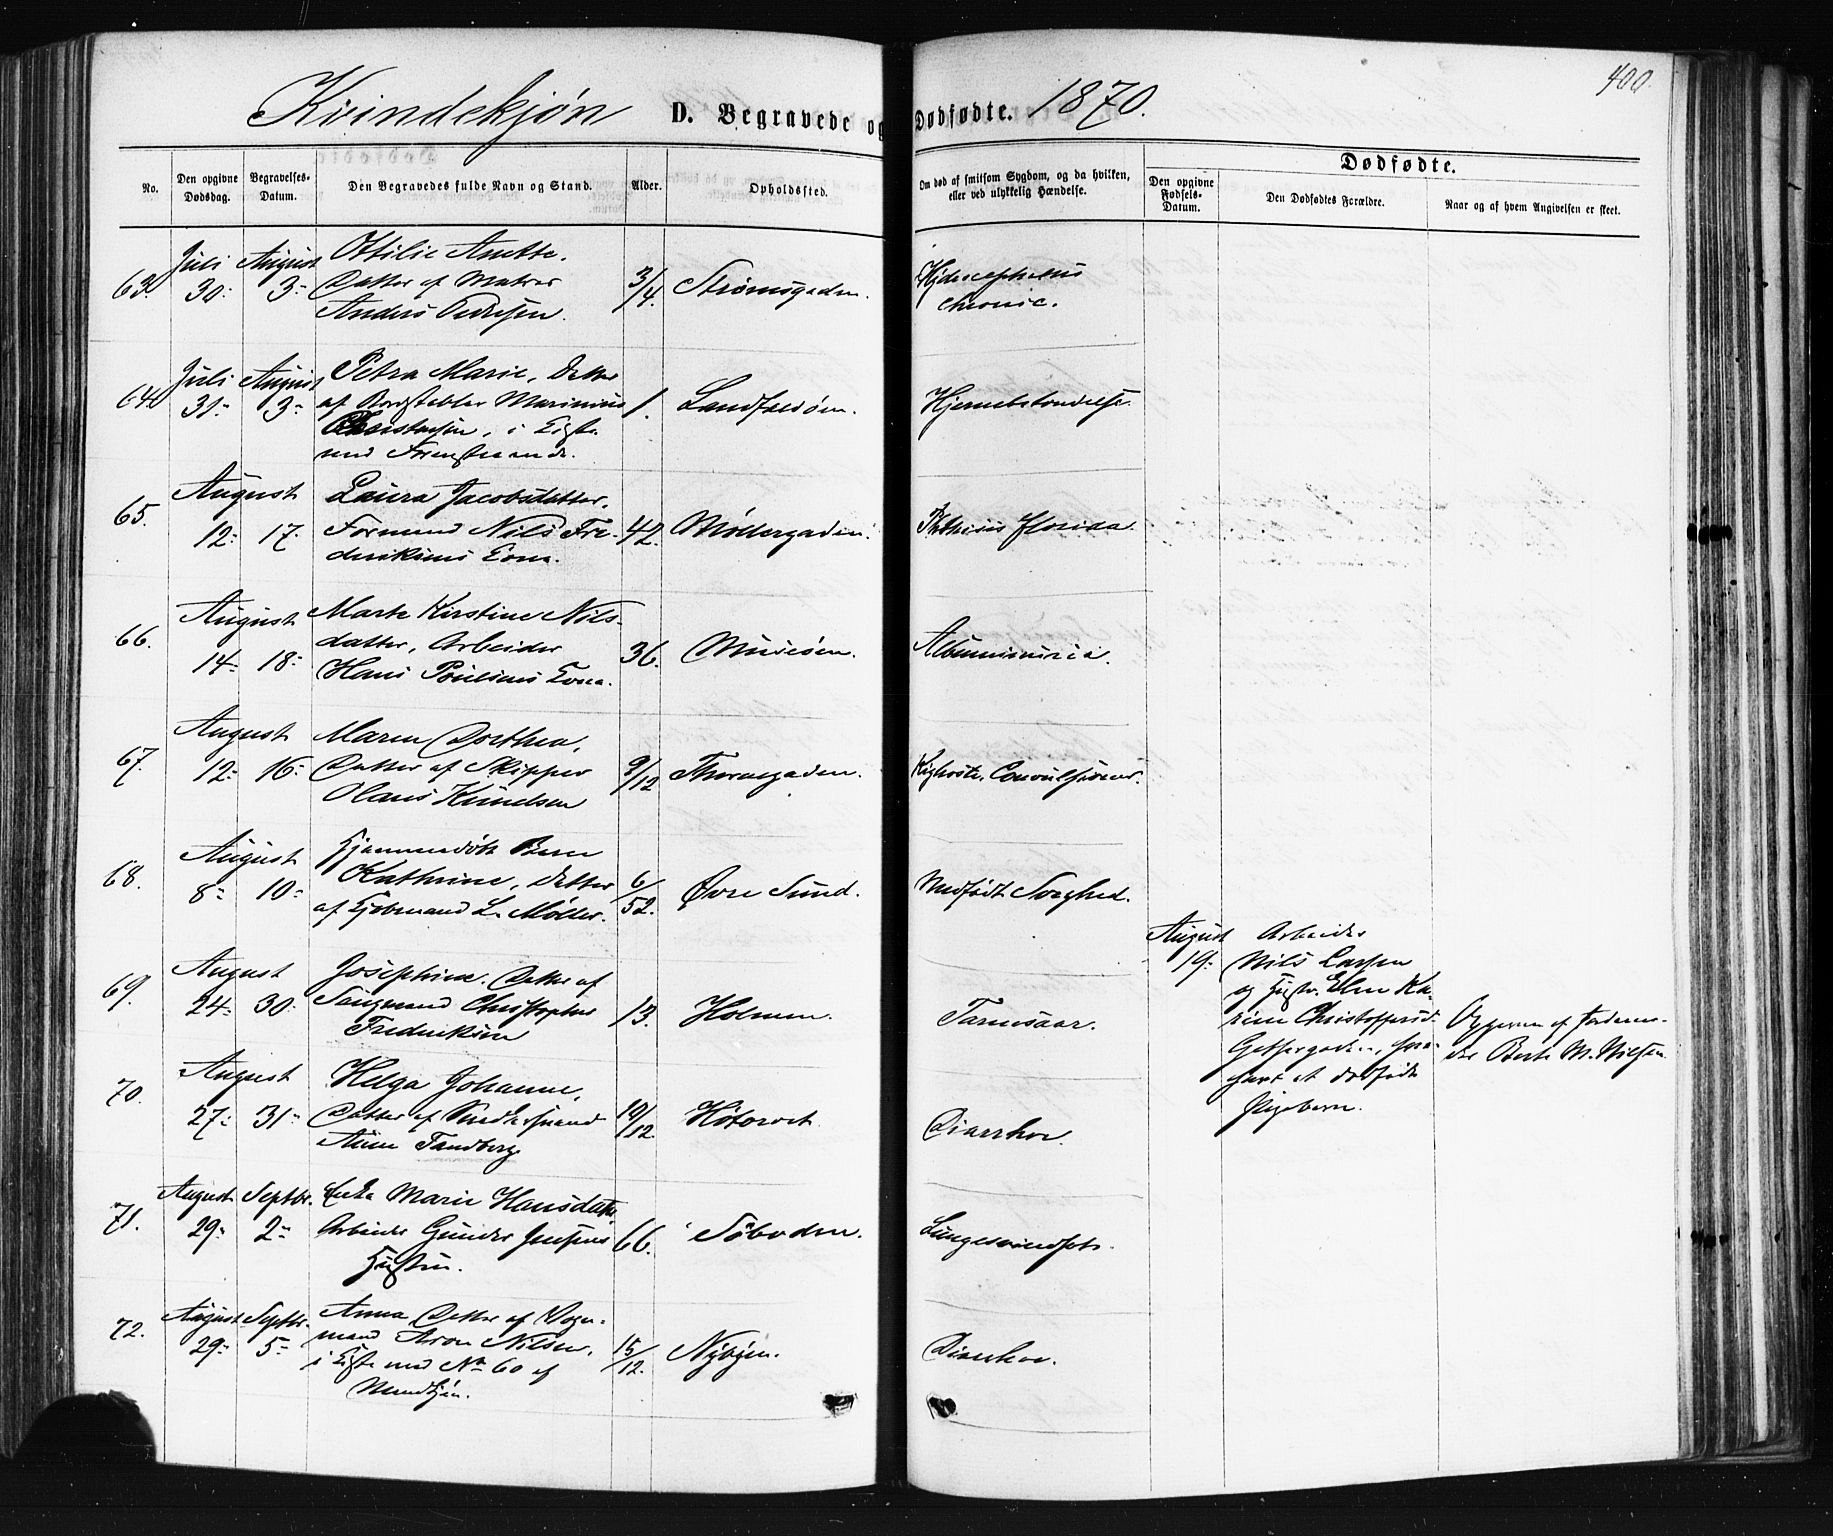 Kvindekjøn D. Begravede og Dødfødte. 1870. 400.
Dødfødte.
No.
Den opgivne Dødsdag.
Begravelses-Datum.
Den Begravedes fulde Navn og Stand.
Alder.
Opholdssted.
Om død af smitsom Sygdom, og da hvilken, eller ved ulykkelig Hændelse.
Den opgivne Fødsels-Datum.
Den Dødfødtes Forældre.
Naar og af hvem Angivelsen er skeet.
63. Juli 30. August 3.
Ottilie Anette.
Datter af Matros
Anders Pedersen.
3/4. Strømsgaden.
Hydrocephalus
chronic.
64. Juli 31. August 3.
Petra Marie, Datter
af Bordstabler Marinius
Christensen, i Gigt
med
1. Landfaldøen.
Hjernebetændelse.
65. August 12. 17.
Laura Jacobsdatter,
Formand Nils Fre-
driksens Kone.
42. Møllergaden.
Phthisis florida.
66. August 14. 18.
Marte Kirstine Nils-
datter, Arbeider
Hans Paulsens Kone.
36. Muusøen.
Albuminuria.
67. August 12. 16.
Maren Dorthea,
Datter af Skipper
Olaus Knudsen
9/12 Thornegaden.
Kighoste. Convulsioner.
68. August 8. 10.
Hjemmedøbt Barn
Kathrine, Datter
af Kjøbmand L. Møller.
6/52. Øvre Sund.
Medfødt Svaghed.
69. August 24. 30.
Josephine. Datter af
Saugmand Christopher
Fredriksen
13. Holmen.
Tarmsaar.
August 19.
Arbeider
Nils Larsen
og Hustr. Elen Ka-
rine Christoffersd.
dødfødt
Pigebarn.
Opgiven af Jordemo-
der Berte M. Nilsen
70. August 27. 31.
Helga Johanne,
Datter af
Tandberg
10/12. Høtorvet
Diarrhoe.
71. August 29. Septbr. 2.
Marie Hansdatter,
Arbeider Gunder Jensens
Hustru.
66. Søboden.
Lungesvindsot.
72. August 29. Septbr. 5.
Anna Datter af Vogn-
mand Aron Nilsen,
i Gigte med No 60 af
Mandkjøn.
15/12. Nybyen.
Diarrhoe.